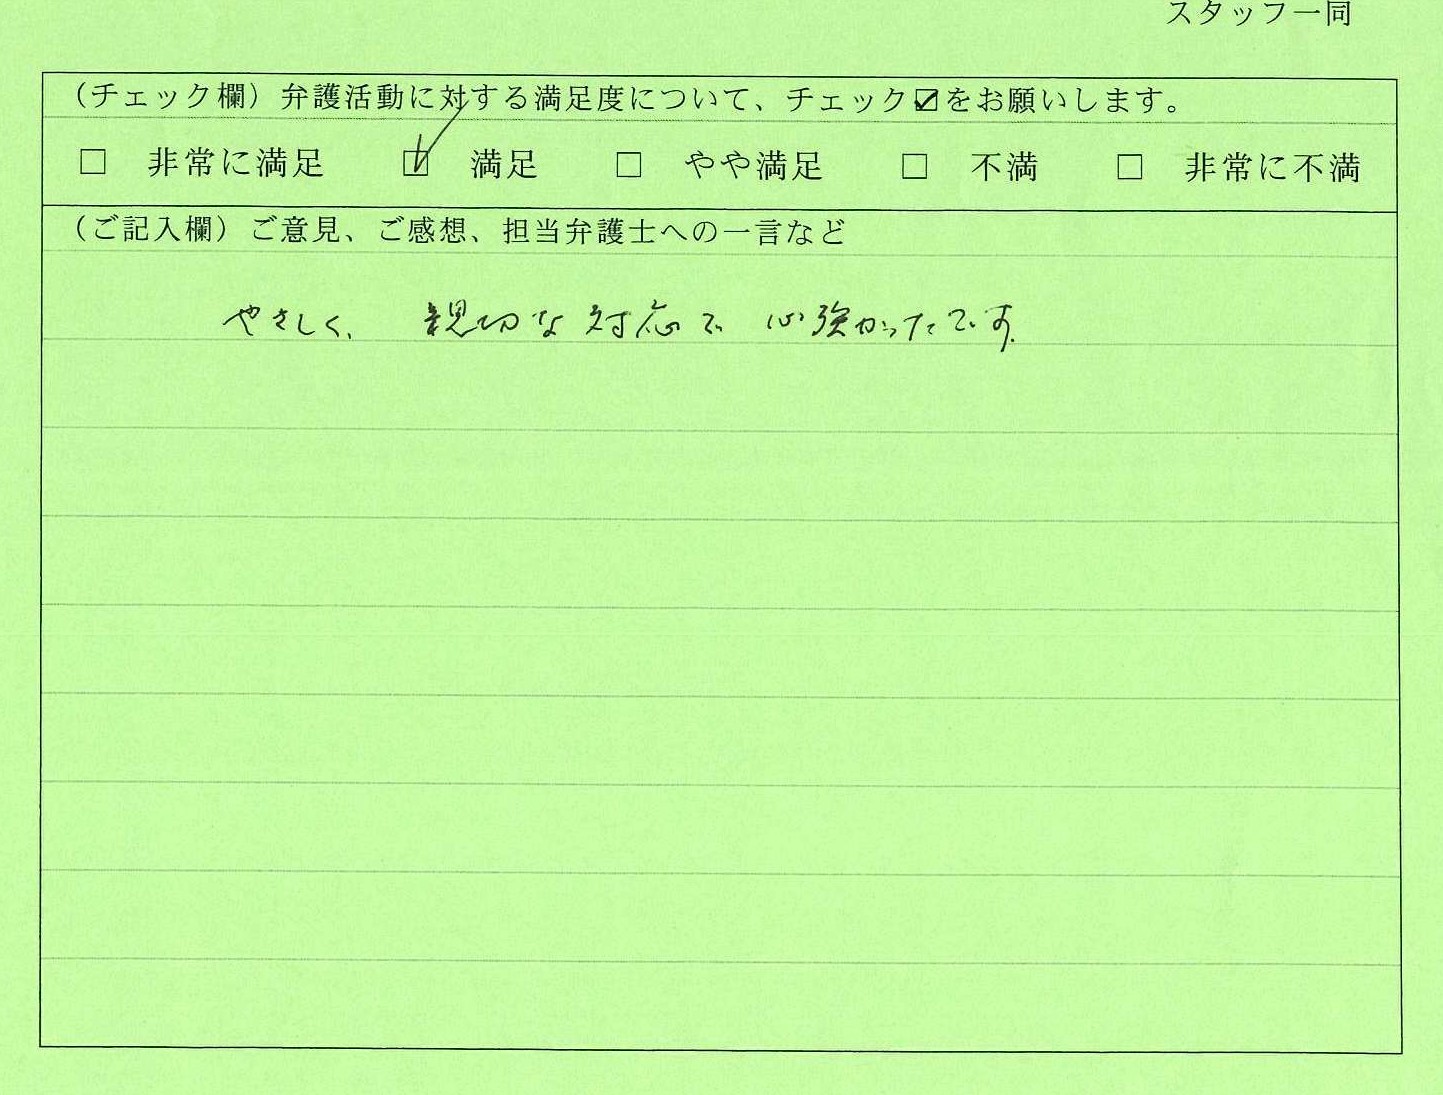 スタッフ一同
（チェック欄）弁護活動に対する満足度について、チェック☑をお願いします。
□ 非常に満足 ☑ 満足 □ やや満足 □ 不満 □ 非常に不満
（ご記入欄）ご意見、ご感想、担当弁護士への一言など
やさしく、親切な対応で心強かったです。